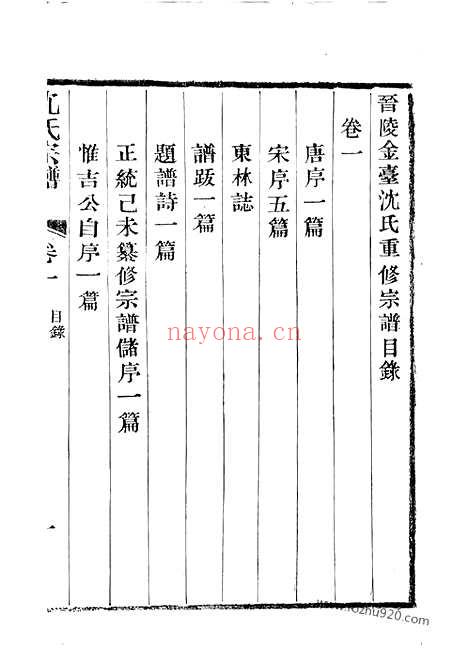 晉陵金臺沈氏重修宗譜目錄
卷一
唐序一篇
宋序五篇
東林誌
譜跋一篇
題譜詩一篇
正統己未纂修宗譜儲序一篇
惟吉公自序一篇
氏宗譜
卷一
目錄
一
nayona.cn